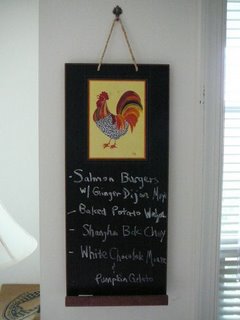 - Salmon Burgers
w/ Ginger Dijon Mayo
- Baked Potato Wedges
- Shanghai Bok Choy
- White Chocolate Mousse
&
Pumpkin Gelato